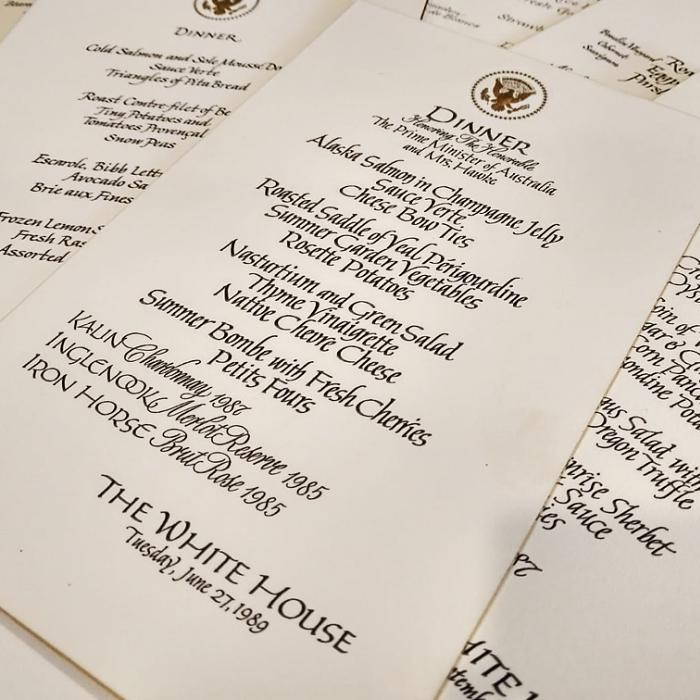 DINNER
Cold Salmon and Sole Mousse
Sauce Verte
Triangles of Pita Bread
Roast Contre-filet of
Tiny Potatoes and
Tomatoes Provençal
Snow Peas
Escarol, Bibb
Avocado
Brie aux Fines
Frozen Lemon
Fresh
Assorted
DINNER
Honoring The Honorable
The Prime Minister of Australia
and Mrs. Hawke
Alaska Salmon in Champagne Jelly
Sauce Verte
Cheese Bow Ties
Roasted Saddle of Veal Périgourdine
Summer Garden Vegetables
Rosette Potatoes
Nasturtium and Green Salad
Thyme Vinaigrette
Native Chevre Cheese
Summer Bombe with Fresh Cherries
Petits Fours
KALIN Chardonnay 1987
INGLENOOK Merlot Reserve 1985
IRON HORSE Brut Rose 1985
THE WHITE HOUSE
Tuesday, June 27, 1989
Cabernet
Sauvignon
of
Corn
Salad with
Oregon Truffle
Sherbet
Sauce